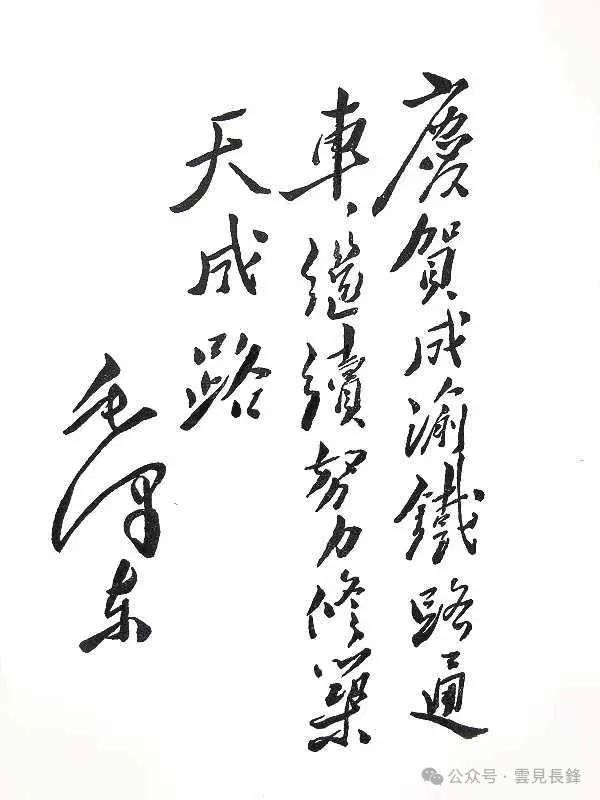 慶賀成渝鐵路通
車、繼續努力修築
天成路
毛澤东
公众号·雲見長鋒